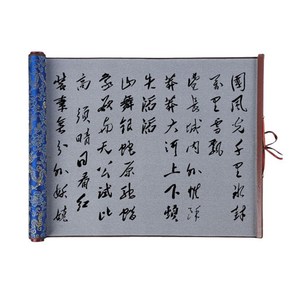 國風光千里冰封
万里雪飄
望長城内外惟餘
莽莽大河上下頓
失滔
山舞銀蛇原馳蠟
象欲与天公试比
高須晴日看红
装素裹分外妖娆